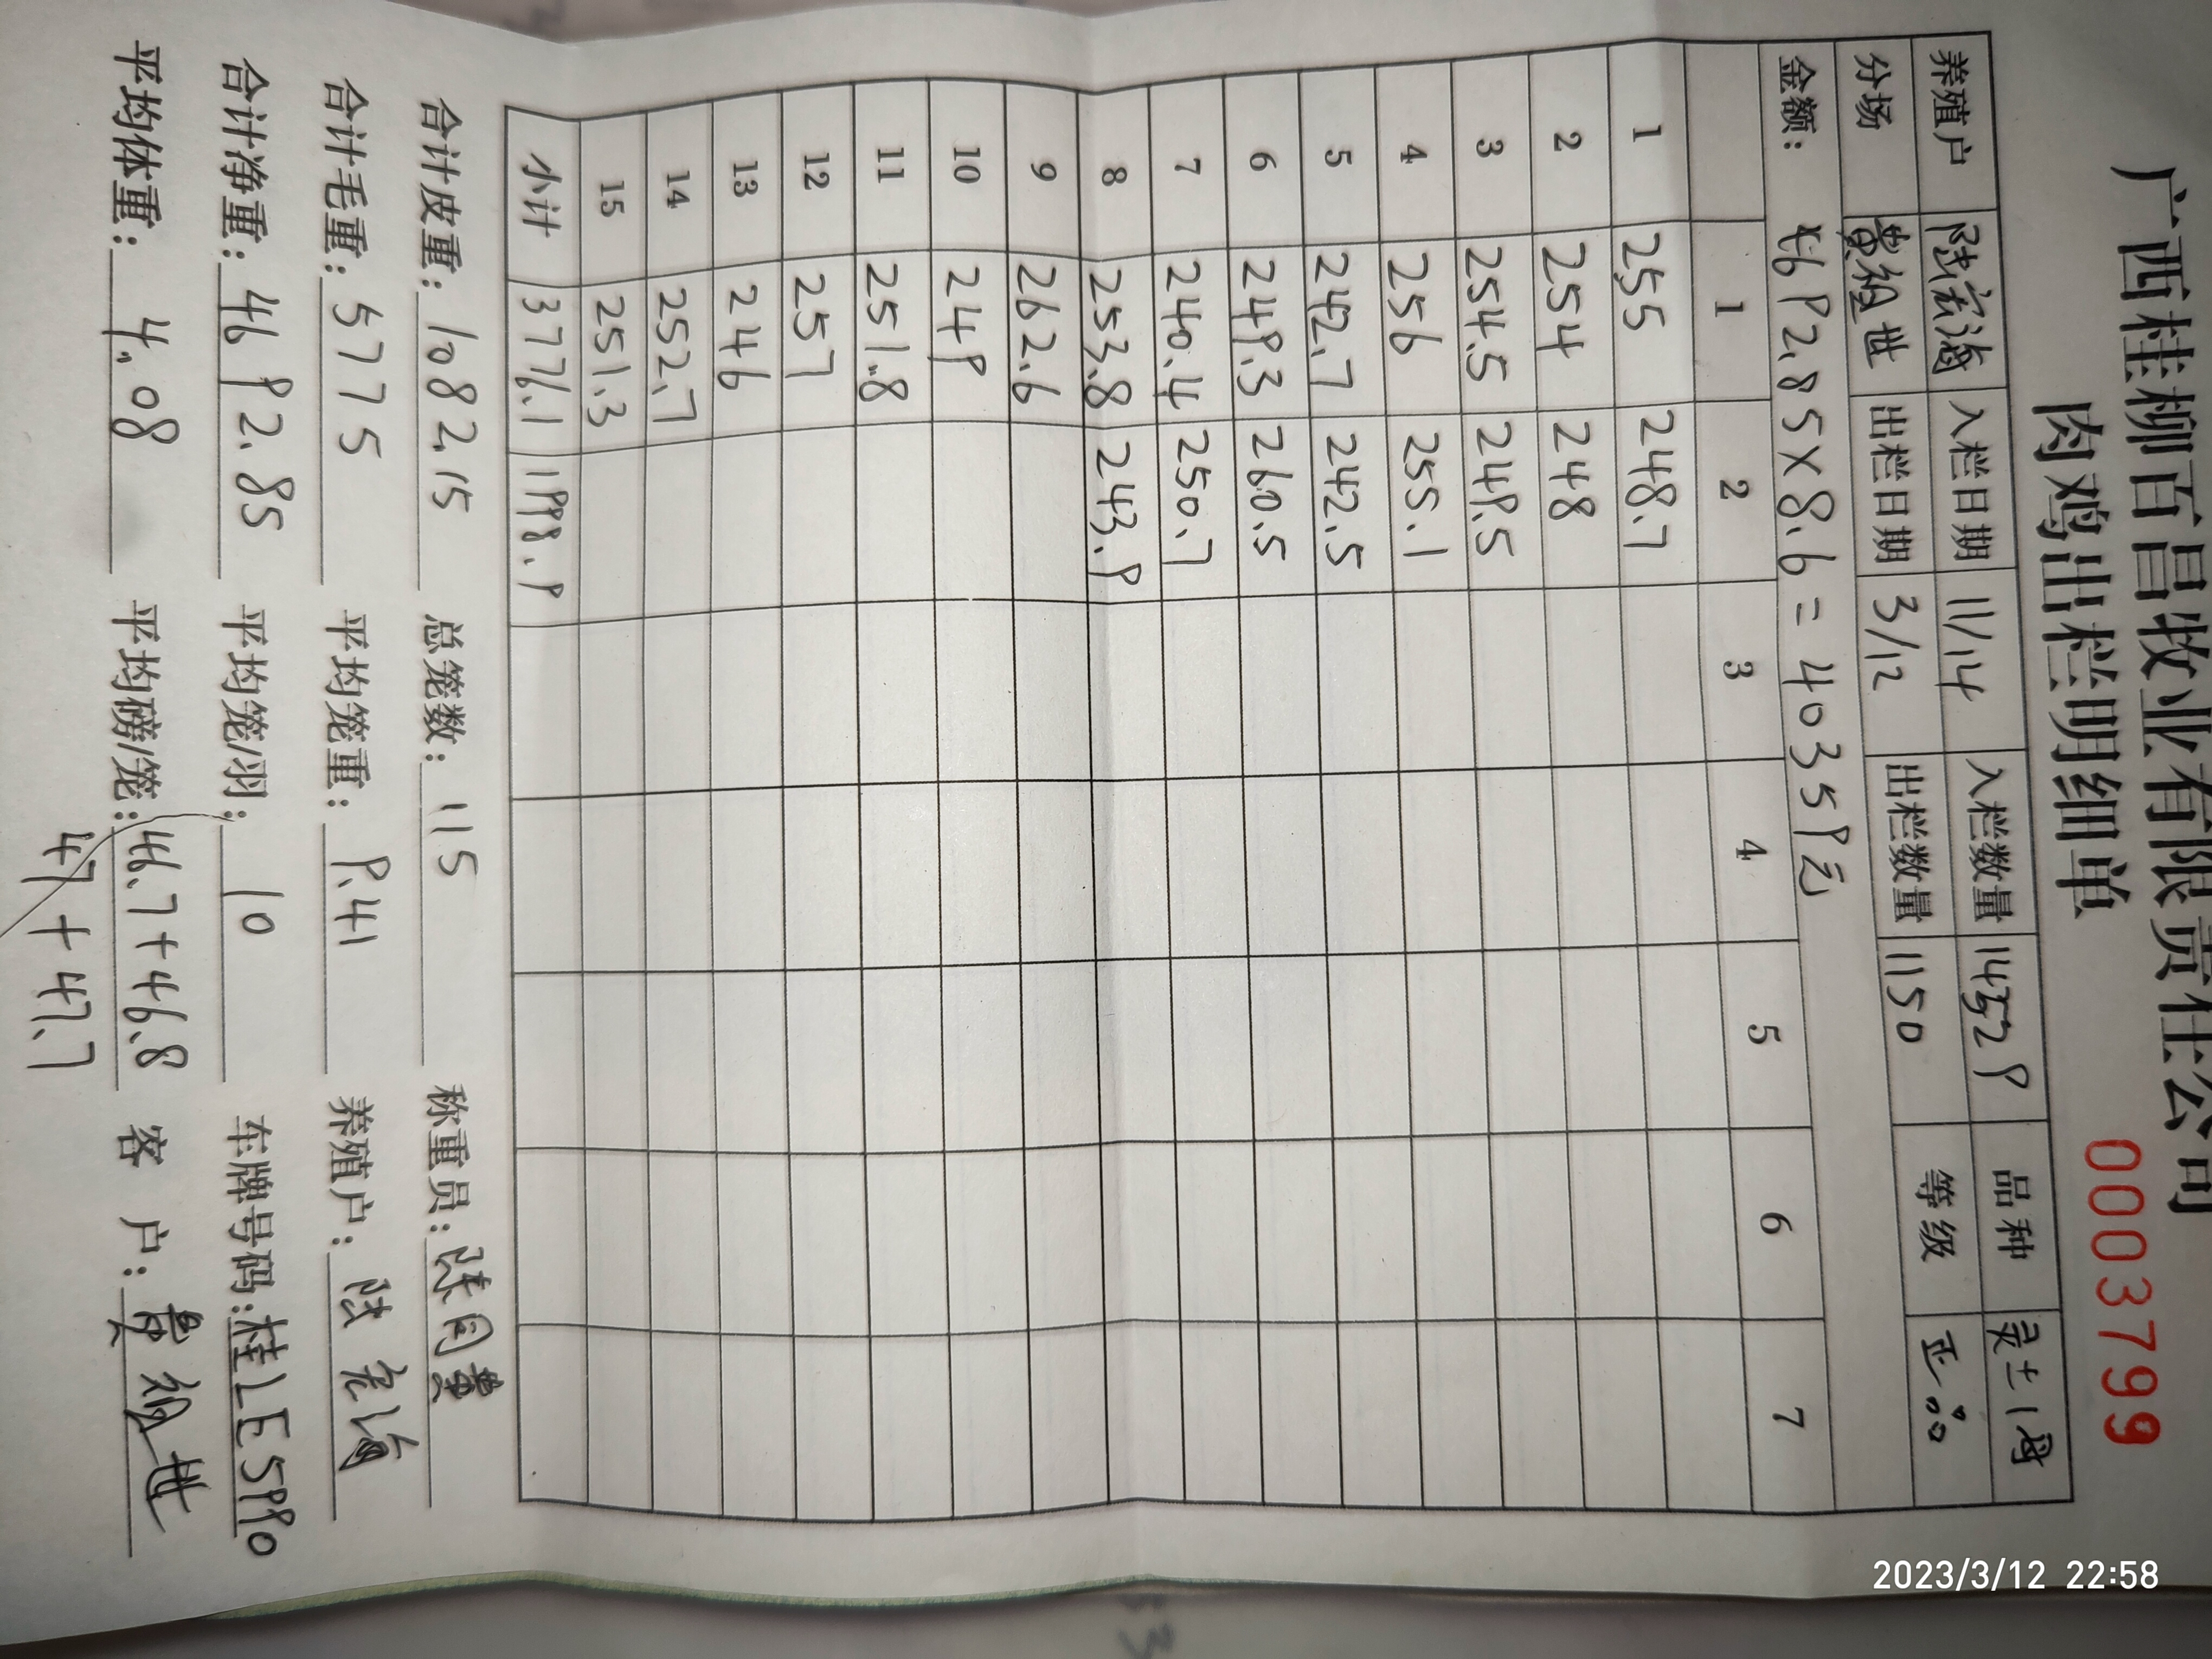 广西桂柳百昌牧业有限责任公司
肉鸡出栏明细单
0003799
养殖户 陆宏海 入栏日期 11/14 入栏数量 14529 品种 灵土1母
分场 黄绍世 出栏日期 3/12 出栏数量 1150 等级 正品
金额: 4692.85×8.6=40359元
1 2 3 4 5 6 7
1 255 248.7
2 254 248
3 254.5 249.5
4 256 255.1
5 242.7 242.5
6 249.3 260.5
7 240.4 250.7
8 253.8 243.9
9 262.6
10 249
11 251.8
12 257
13 246
14 252.7
15 251.3
小计 3776.1 1998.9
合计皮重: 1082.15 总笼数: 115 称重员:
合计毛重: 5775 平均笼重: 9.41 养殖户: 陆宏海
合计净重: 4692.85 平均笼/羽: 10 车牌号码: 桂LE5990
平均体重: 4.08 平均磅/笼: 46.7+46.8 客户: 黄绍世
47+47.7
2023/3/12 22:58